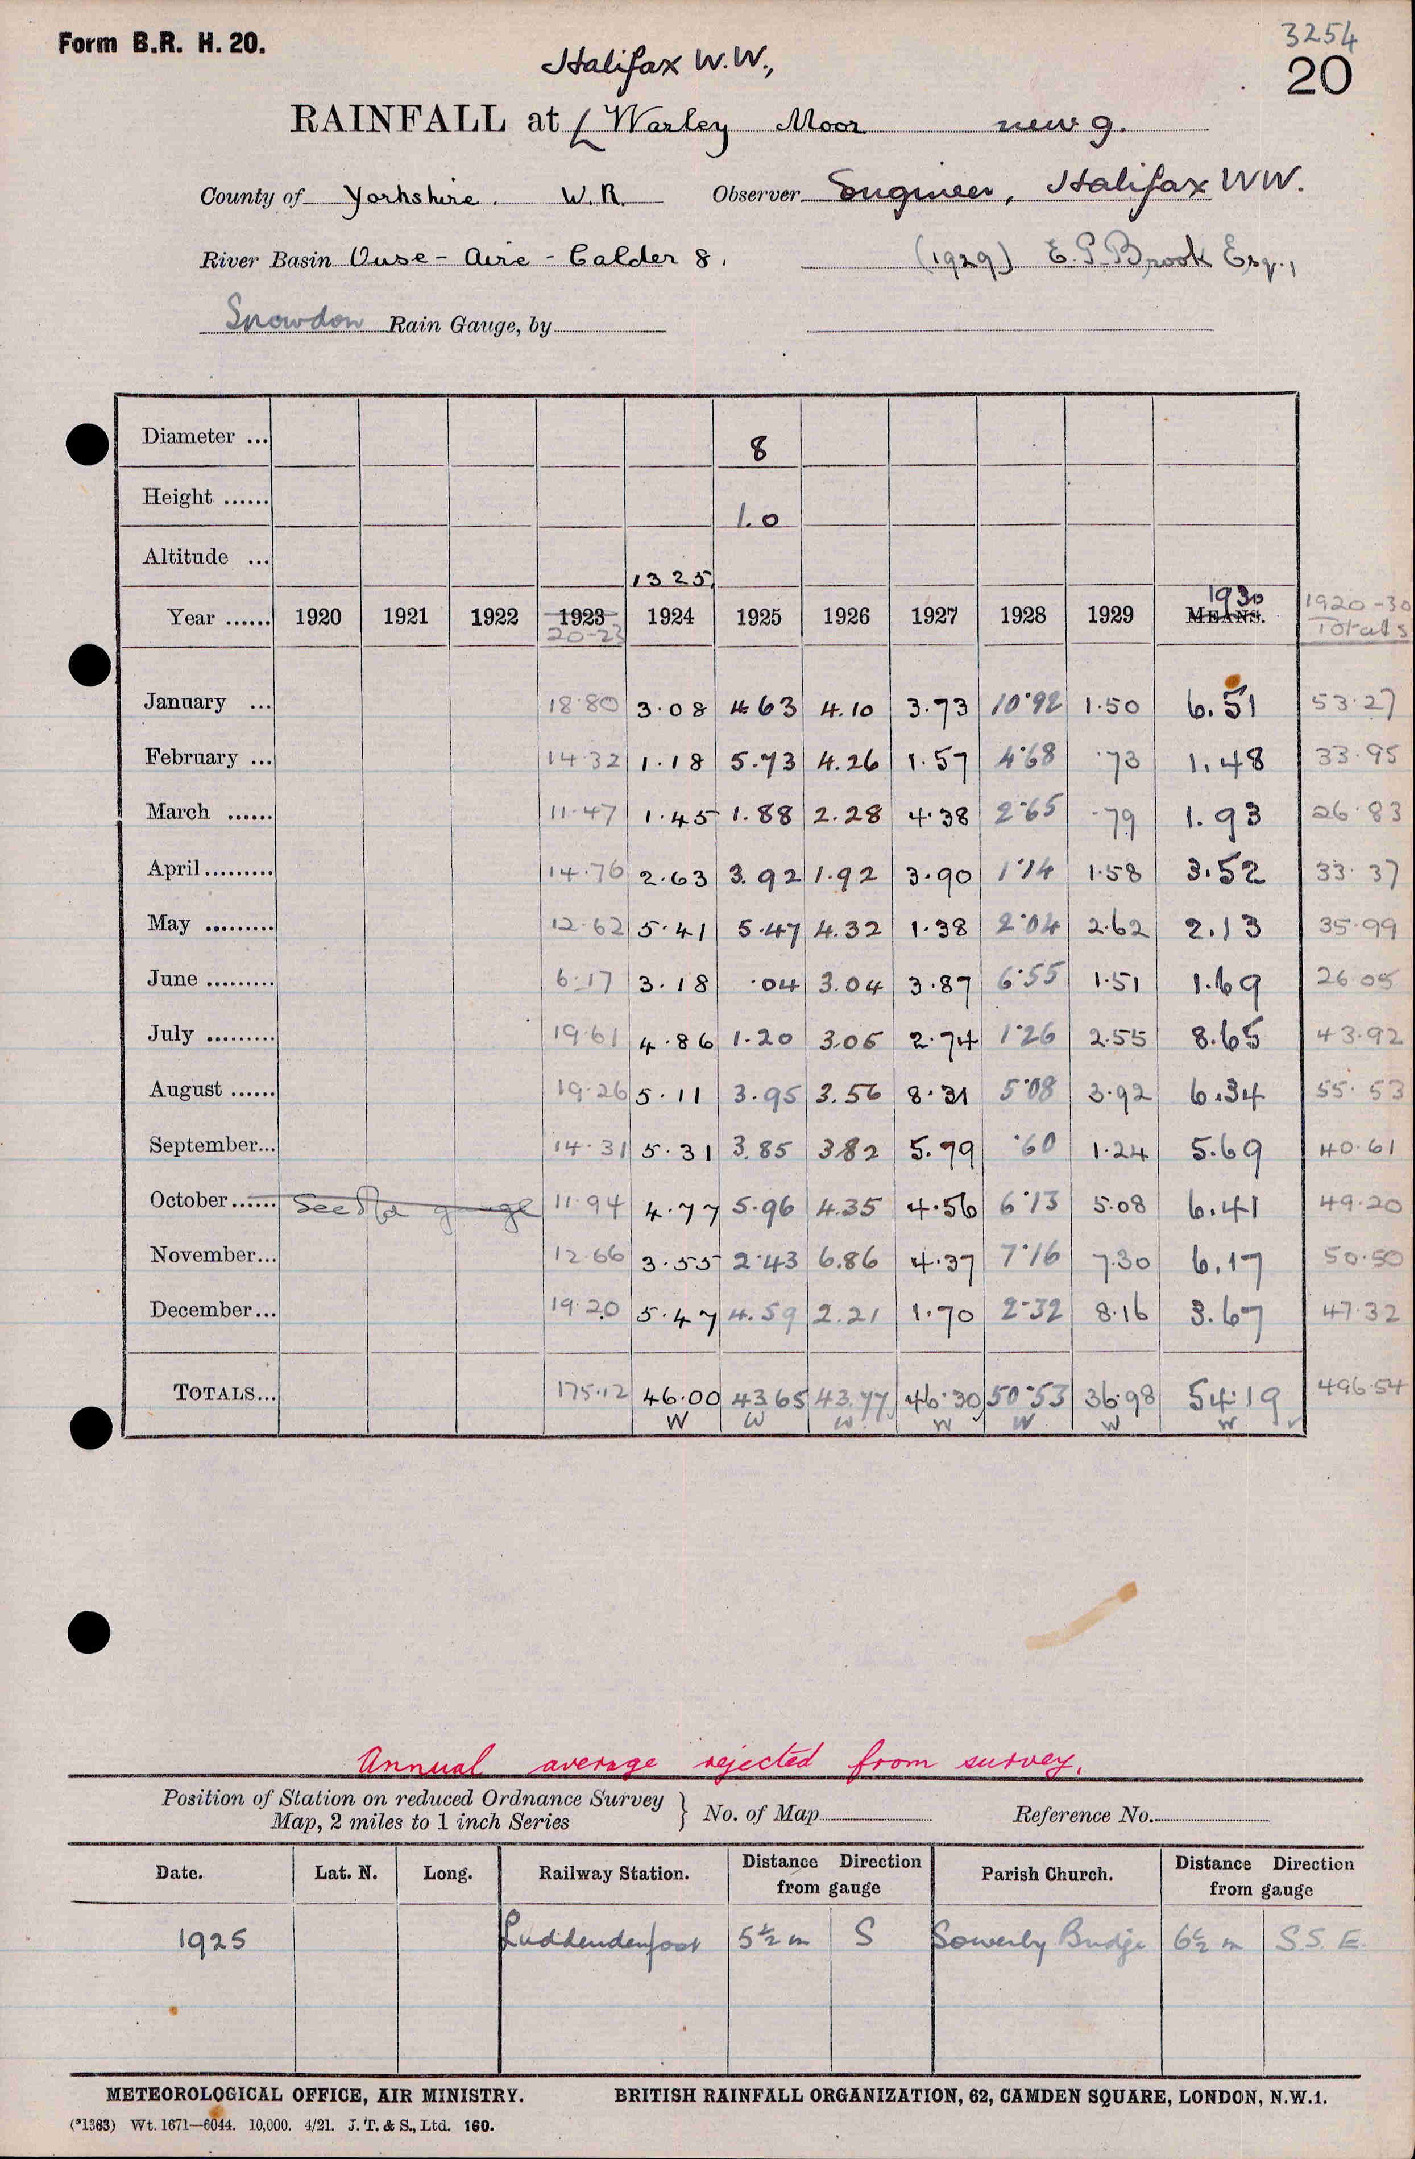 Form B.R. H. 20.
3254
20
Halifax W.W.,
RAINFALL at Warley Moor new g.
County of Yorkshire. W.R. Observer Engineer, Halifax WW.
River Basin Ouse - Aire - Calder 8. (1929) E.P. Brook Esq.,
Snowdon Rain Gauge, by
Diameter ... 8
Height ...... 1.0
Altitude ... 1325
Year ...... 1920 1921 1922 1923 20-23 1924 1925 1926 1927 1928 1929 1930 MEANS. 1920-30 Totals
January ... 18.80 3.08 4.63 4.10 3.73 10.92 1.50 6.51 53.27
February ... 14.32 1.18 5.73 4.26 1.57 4.68 .73 1.48 33.95
March ...... 11.47 1.45 1.88 2.28 4.38 2.65 .79 1.93 26.83
April......... 14.76 2.63 3.92 1.92 3.90 1.14 1.58 3.52 33.37
May ......... 12.62 5.41 5.47 4.32 1.38 2.04 2.62 2.13 35.99
June ......... 6.17 3.18 .04 3.04 3.87 6.55 1.51 1.69 26.05
July ......... 19.61 4.86 1.20 3.05 2.74 1.26 2.55 8.65 43.92
August ...... 19.26 5.11 3.95 3.56 8.31 5.08 3.92 6.34 55.53
September... 14.31 5.31 3.85 3.82 5.79 .60 1.24 5.69 40.61
October...... See gauge 11.94 4.77 5.96 4.35 4.56 6.13 5.08 6.41 49.20
November... 12.66 3.55 2.43 6.86 4.37 7.16 7.30 6.17 50.50
December... 19.20 5.47 4.59 2.21 1.70 2.32 8.16 3.67 47.32
TOTALS... 175.12 46.00 43.65 43.77 46.30 50.53 36.98 54.19 496.54
W W W W W W W
Annual average rejected from survey.
Position of Station on reduced Ordnance Survey Map, 2 miles to 1 inch Series } No. of Map Reference No.
Date. Lat. N. Long. Railway Station. Distance Direction from gauge Parish Church. Distance Direction from gauge
1925 Luddendenfoot 5½ m S Sowerby Bridge 6½ m S.S.E.
METEOROLOGICAL OFFICE, AIR MINISTRY. BRITISH RAINFALL ORGANIZATION, 62, CAMDEN SQUARE, LONDON, N.W.1.
(*1383) Wt. 1671—6044. 10,000. 4/21. J. T. & S., Ltd. 160.